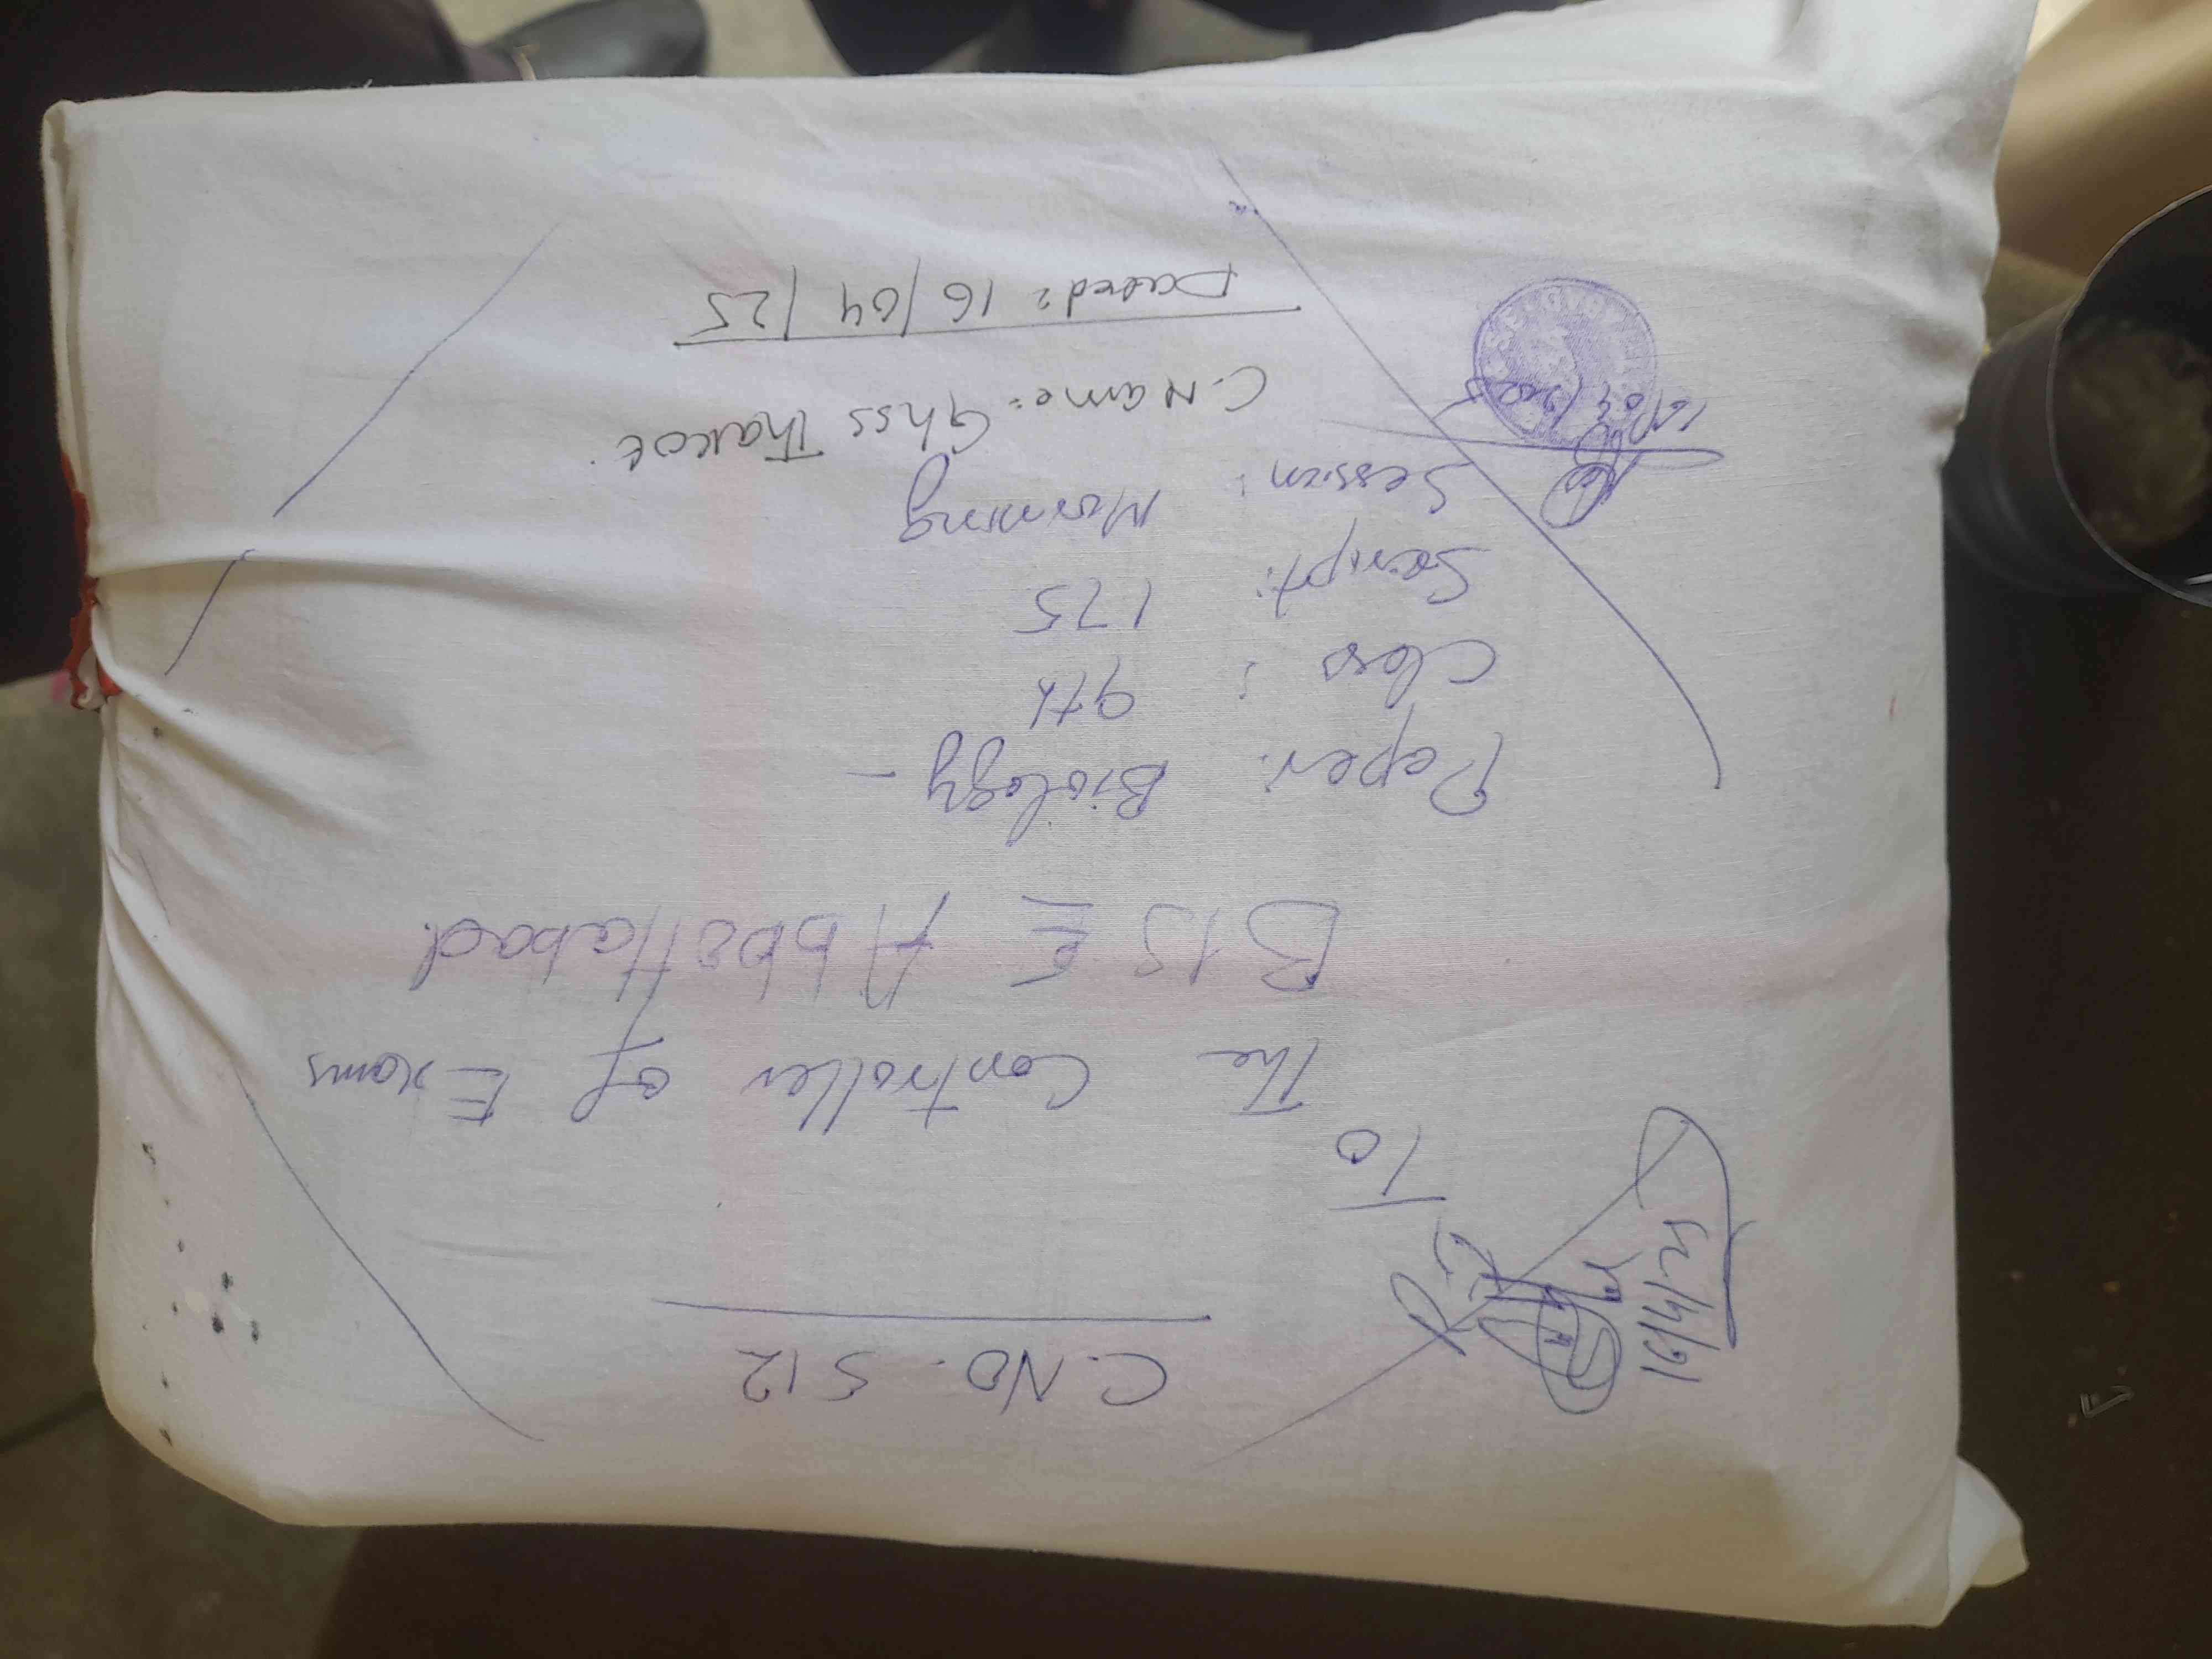 C.NO. 512
To
The Controller of Exams
BISE Abbottabad.
Paper: Biology -
Class: 9th
Script: 175
Session: Morning
C.Name: Ghss Thakot.
Dated: 16/04/25
16/4/25